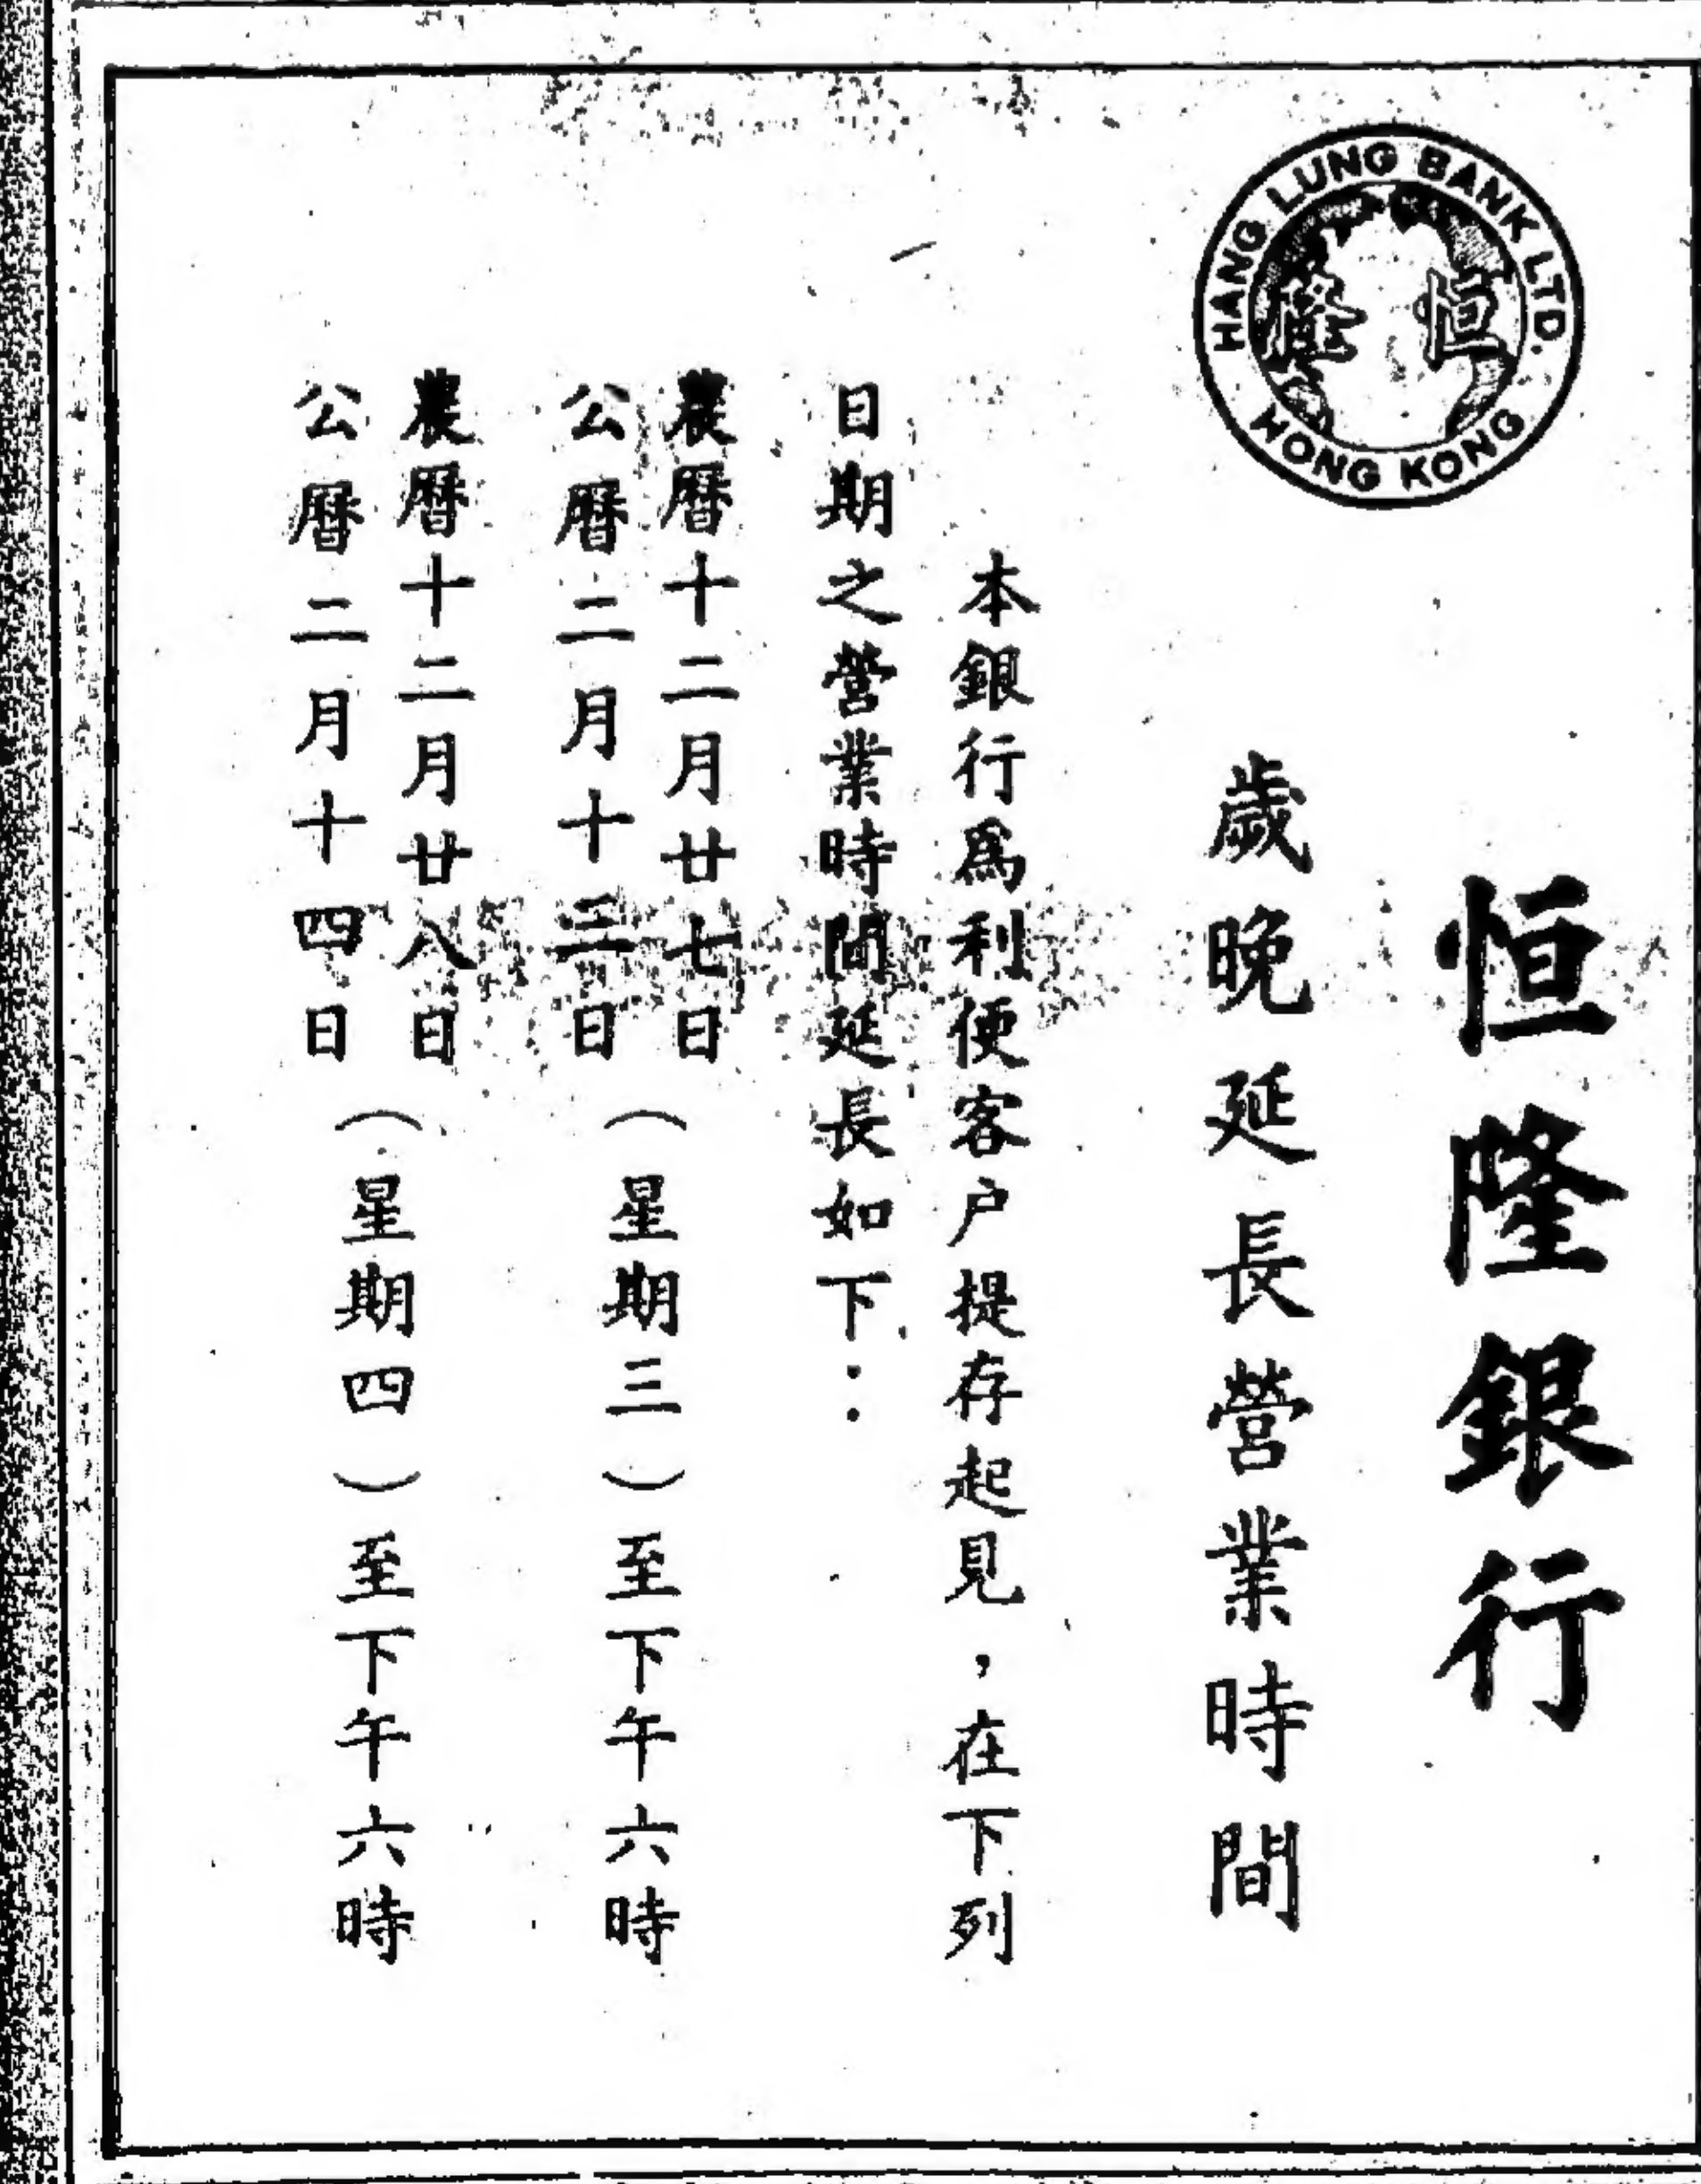 HANG LUNG BANK LTD.
恒隆
HONG KONG
恒隆銀行
歲晚延長營業時間
本銀行爲利便客户提存起見,在下列
日期之營業時間延長如下:
農曆十二月廿七日
公曆二月十三日
(星期三)至下午六時
農曆十二月廿八日
公曆二月十四日
(星期四)至下午六時